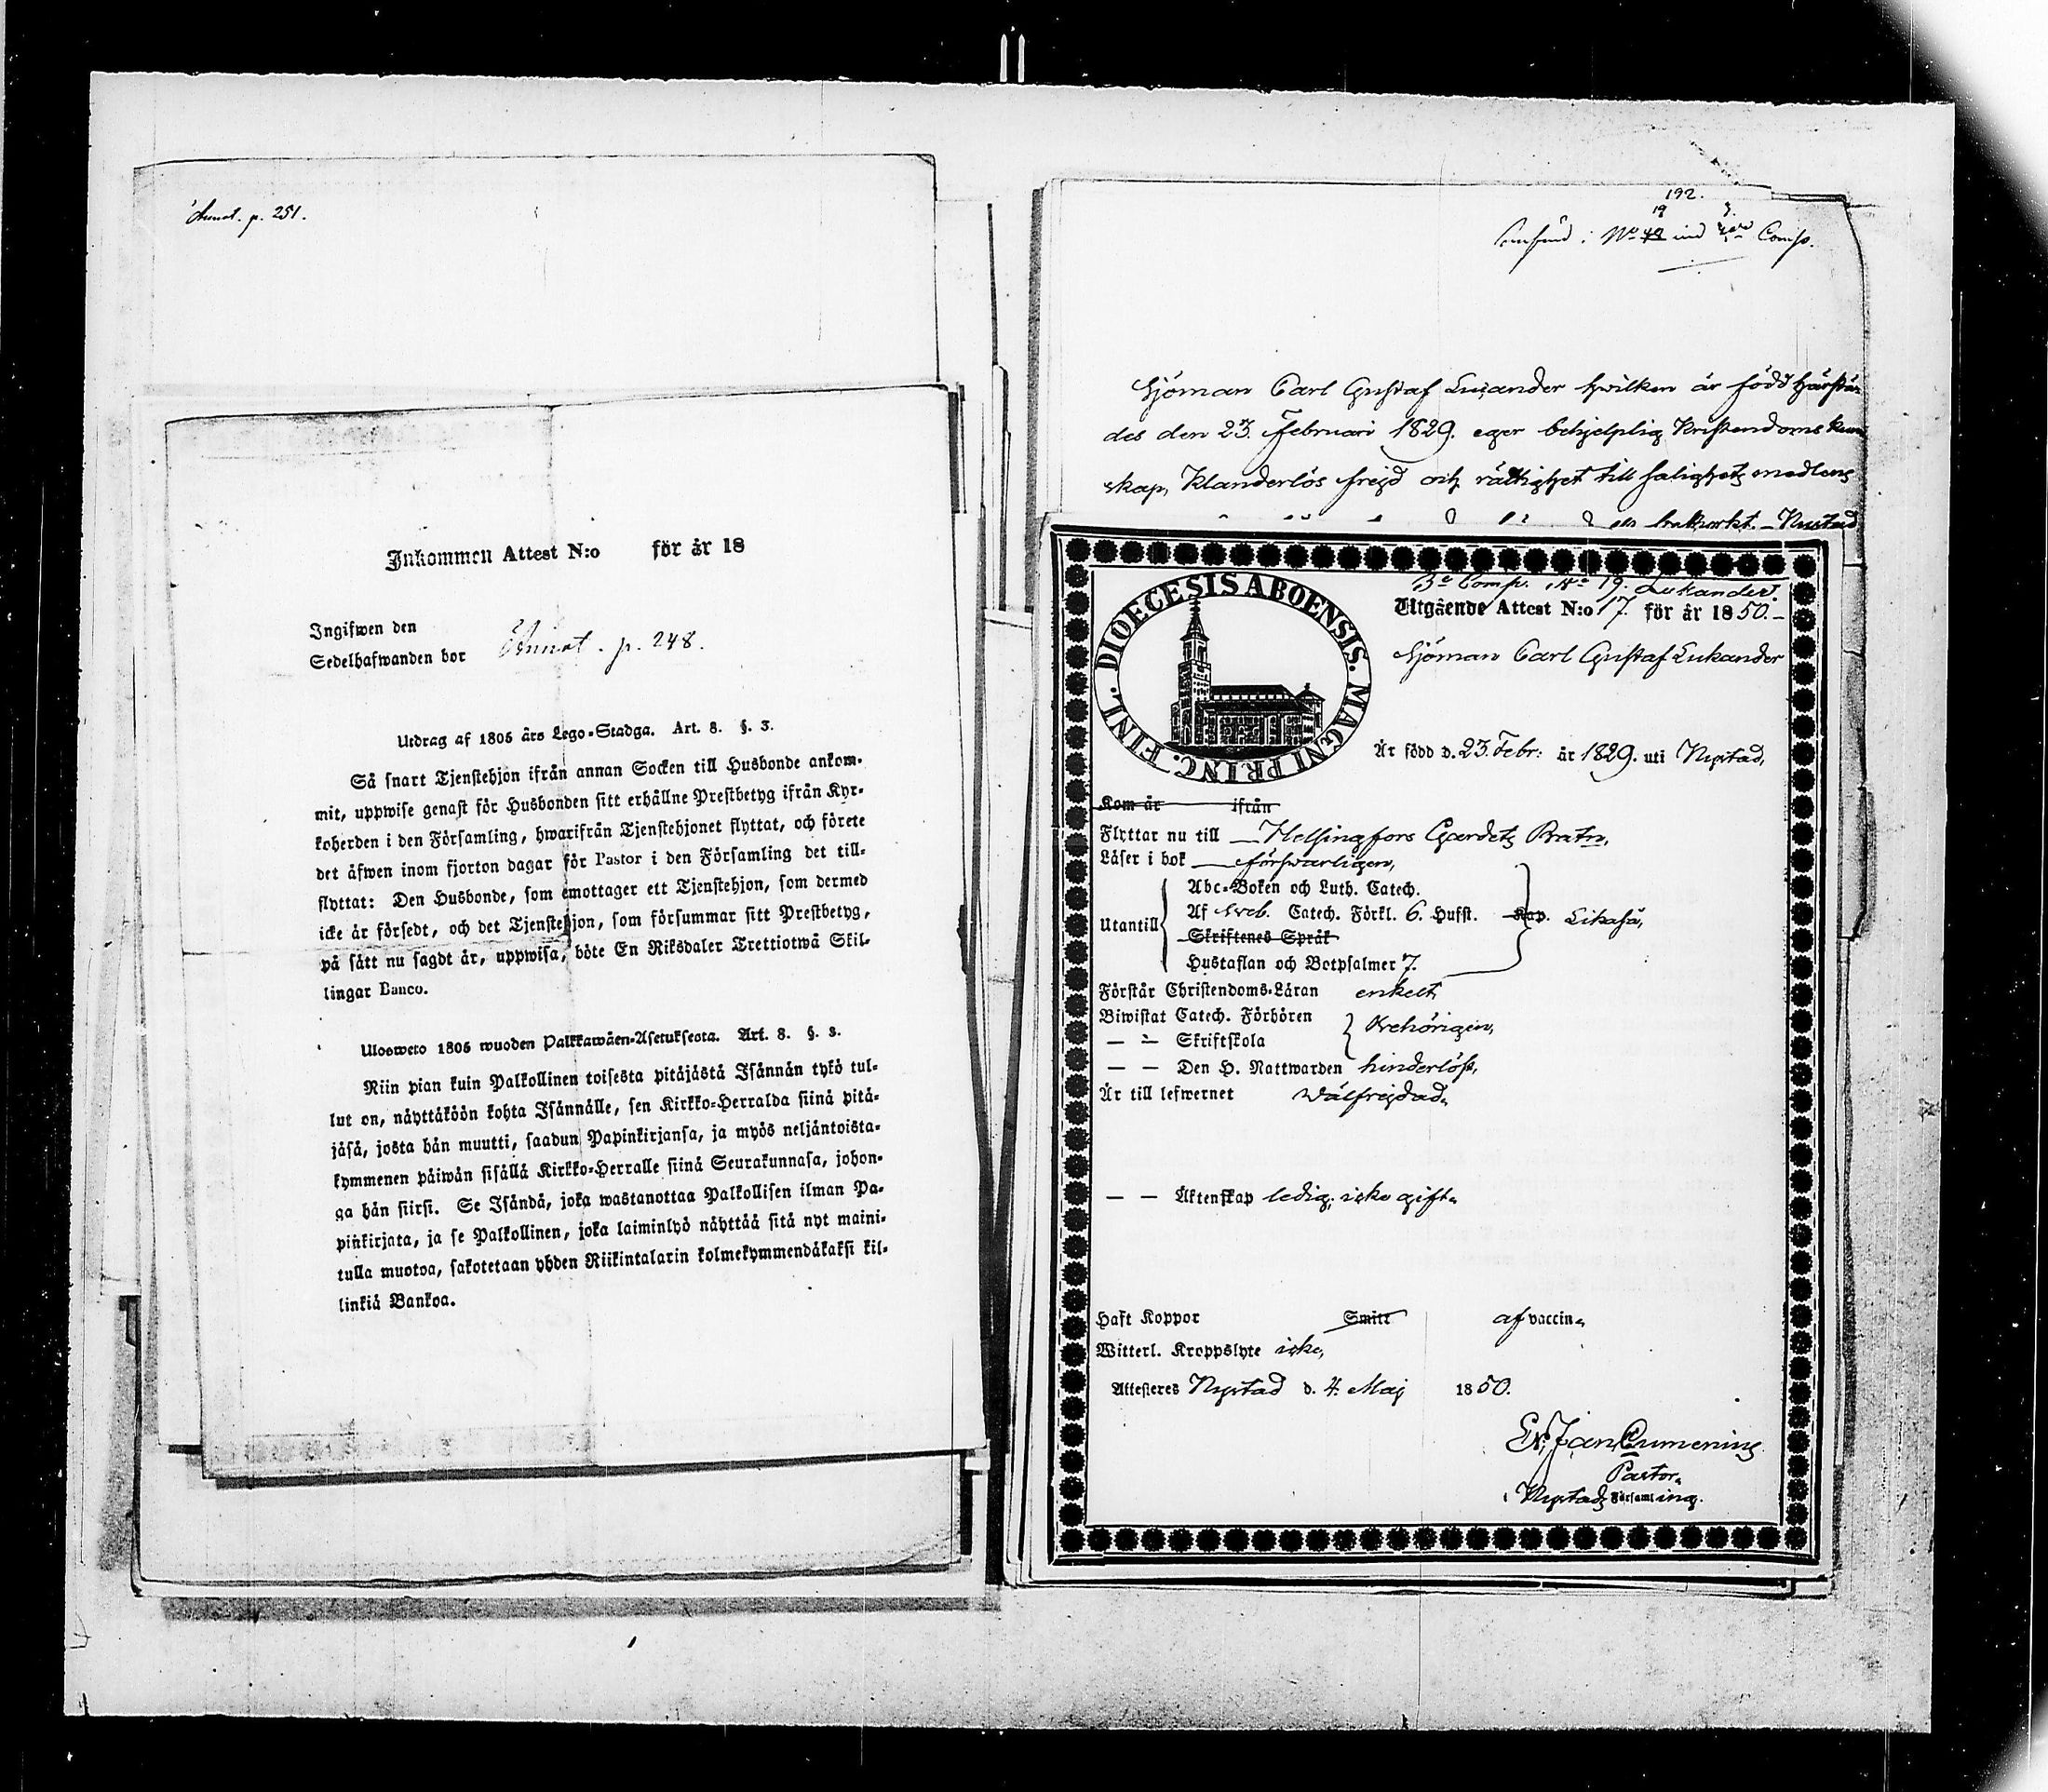 Annot. p. 251.
Inkommen Attest N:o för år 18
Ingifwen den
Sedelhafwanden bor
Annot. p. 248.
Utdrag af 1805 års Lego-Stadga. Art. 8. §. 3.
Så snart Tjenstehjon ifrån annan Socken till Husbonde ankom-
mit, uppwise genast för Husbonden sitt erhållne Prestbetyg ifrån Kyr-
koherden i den Församling, hwarifrån Tjenstehjonet flyttat, och förete
det äfwen inom fjorton dagar för Pastor i den Församling det till-
flyttat: Den Husbonde, som emottager ett Tjenstehjon, som dermed
icke är försedt, och det Tjenstehjon, som försummar sitt Prestbetyg,
på sätt nu sagdt är, uppwisa, böte En Riksdaler Trettiotwå Skil-
lingar Banco.
Ulosweto 1805 wuoden Palkkawäen-Asetuksesta. Art. 8. §. 3.
Niin pian kuin Palkollinen toisesta pitäjästä Isännän tykö tul-
lut on, näyttäköön kohta Isännälle, sen Kirkko-Herralda siinä pitä-
jäsä, josta hän muutti, saadun Papinkirjansa, ja myös neljäntoista-
kymmenen päiwän sisällä Kirkko-Herralle siinä Seurakunnasa, johon-
ga hän siirsi. Se Isändä, joka wastanottaa Palkollisen ilman Pa-
pinkirjata, ja se Palkollinen, joka laiminlyö näyttää sitä nyt maini-
tulla muotoa, sakotetaan yhden Riikintalarin kolmekymmendäkaksi kil-
linkiä Bankoa.
192.
19 3.
N:o 48 Comp.
Sjöman Carl Gustaf Lucander hwilken är född härstä-
des den 23. Februari 1829. eger behjelplig Kristendoms kun
skap, Klanderlös frejd och rättighet till salighets medlens
Nystad
3e Comp. No 19. Lukander.
DIOECESIS ABOENSIS. MAGNI PRINC. FINL.
Utgående Attest N:o 17. för år 1850.
Sjöman Carl Gustaf Lukander
Är född d. 23. Febr: år 1829. uti Nystad,
Kom år ifrån
Flyttar nu till Helsingfors Gardets Batn,
Läser i bok förswarligen,
Abc-Boken och Luth. Catech.
Utantill Af Sveb. Catech. Förkl. 6. Hufst. Kap. Likaså,
Skriftenes Språk
Hustaflan och Botpsalmer 7.
Förstår Christendoms-Läran enkelt,
Biwistat Catech. Förhören
— — Skriftskola behörigen,
— — Den H. Nattwarden hinderlöst,
Är till lefwernet wälfrejdad.
— — Äktenskap ledig, icke gift.
Haft Koppor Smitt af vaccin.
Witterl. Kroppslyte icke,
Attesteras Nystad d. 4. Maj 1850.
Cumenius
Pastor.
i Nystads Församling.